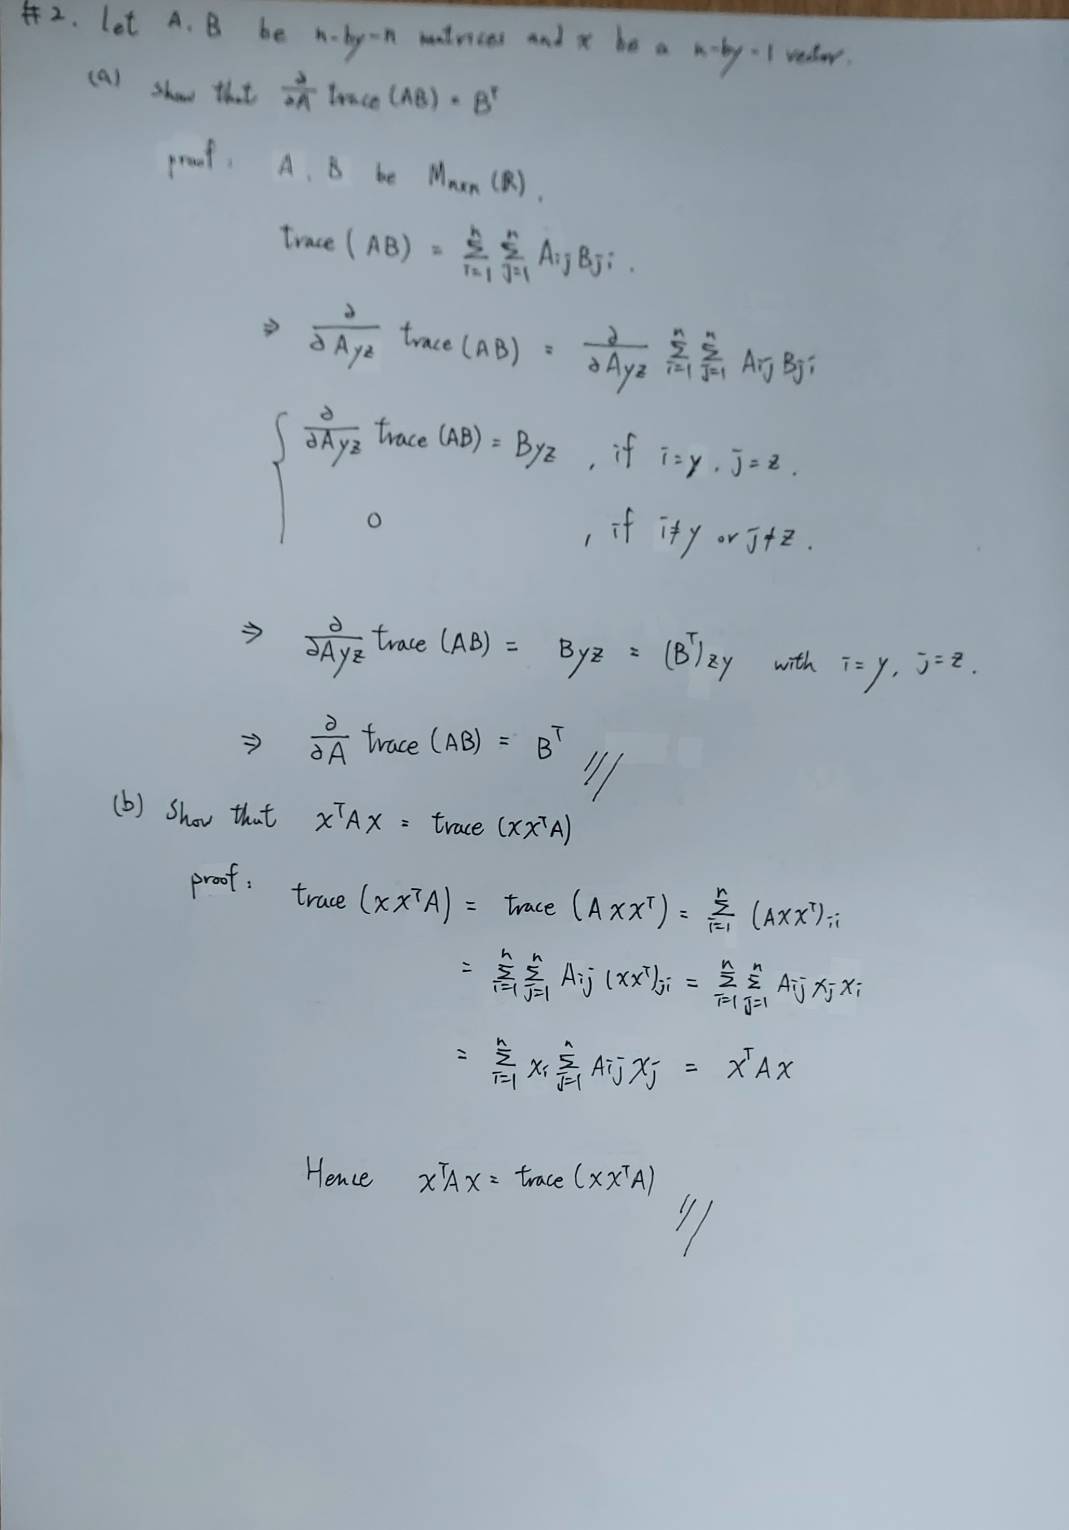 #2. Let A, B be n-by-n matrices and x be a n-by-1 vector.
(a) show that ∂/∂A trace (AB) = Bᵀ
proof: A, B be Mₙₓₙ (ℝ).
trace (AB) = Σⁿᵢ₌₁ Σⁿⱼ₌₁ Aᵢⱼ Bⱼᵢ.
⇒ ∂/∂A_yz trace (AB) = ∂/∂A_yz Σⁿᵢ₌₁ Σⁿⱼ₌₁ Aᵢⱼ Bⱼᵢ
{ ∂/∂A_yz trace (AB) = B_yz , if i=y, j=z.
0 , if i≠y or j≠z.
⇒ ∂/∂A_yz trace (AB) = B_yz = (Bᵀ)_zy with i=y, j=z.
⇒ ∂/∂A trace (AB) = Bᵀ ///
(b) Show that xᵀAx = trace (xxᵀA)
proof: trace (xxᵀA) = trace (Axxᵀ) = Σⁿᵢ₌₁ (Axxᵀ)ᵢᵢ
= Σⁿᵢ₌₁ Σⁿⱼ₌₁ Aᵢⱼ (xxᵀ)ⱼᵢ = Σⁿᵢ₌₁ Σⁿⱼ₌₁ Aᵢⱼ xⱼ xᵢ
= Σⁿᵢ₌₁ xᵢ Σⁿⱼ₌₁ Aᵢⱼ xⱼ = xᵀAx
Hence xᵀAx = trace (xxᵀA) //